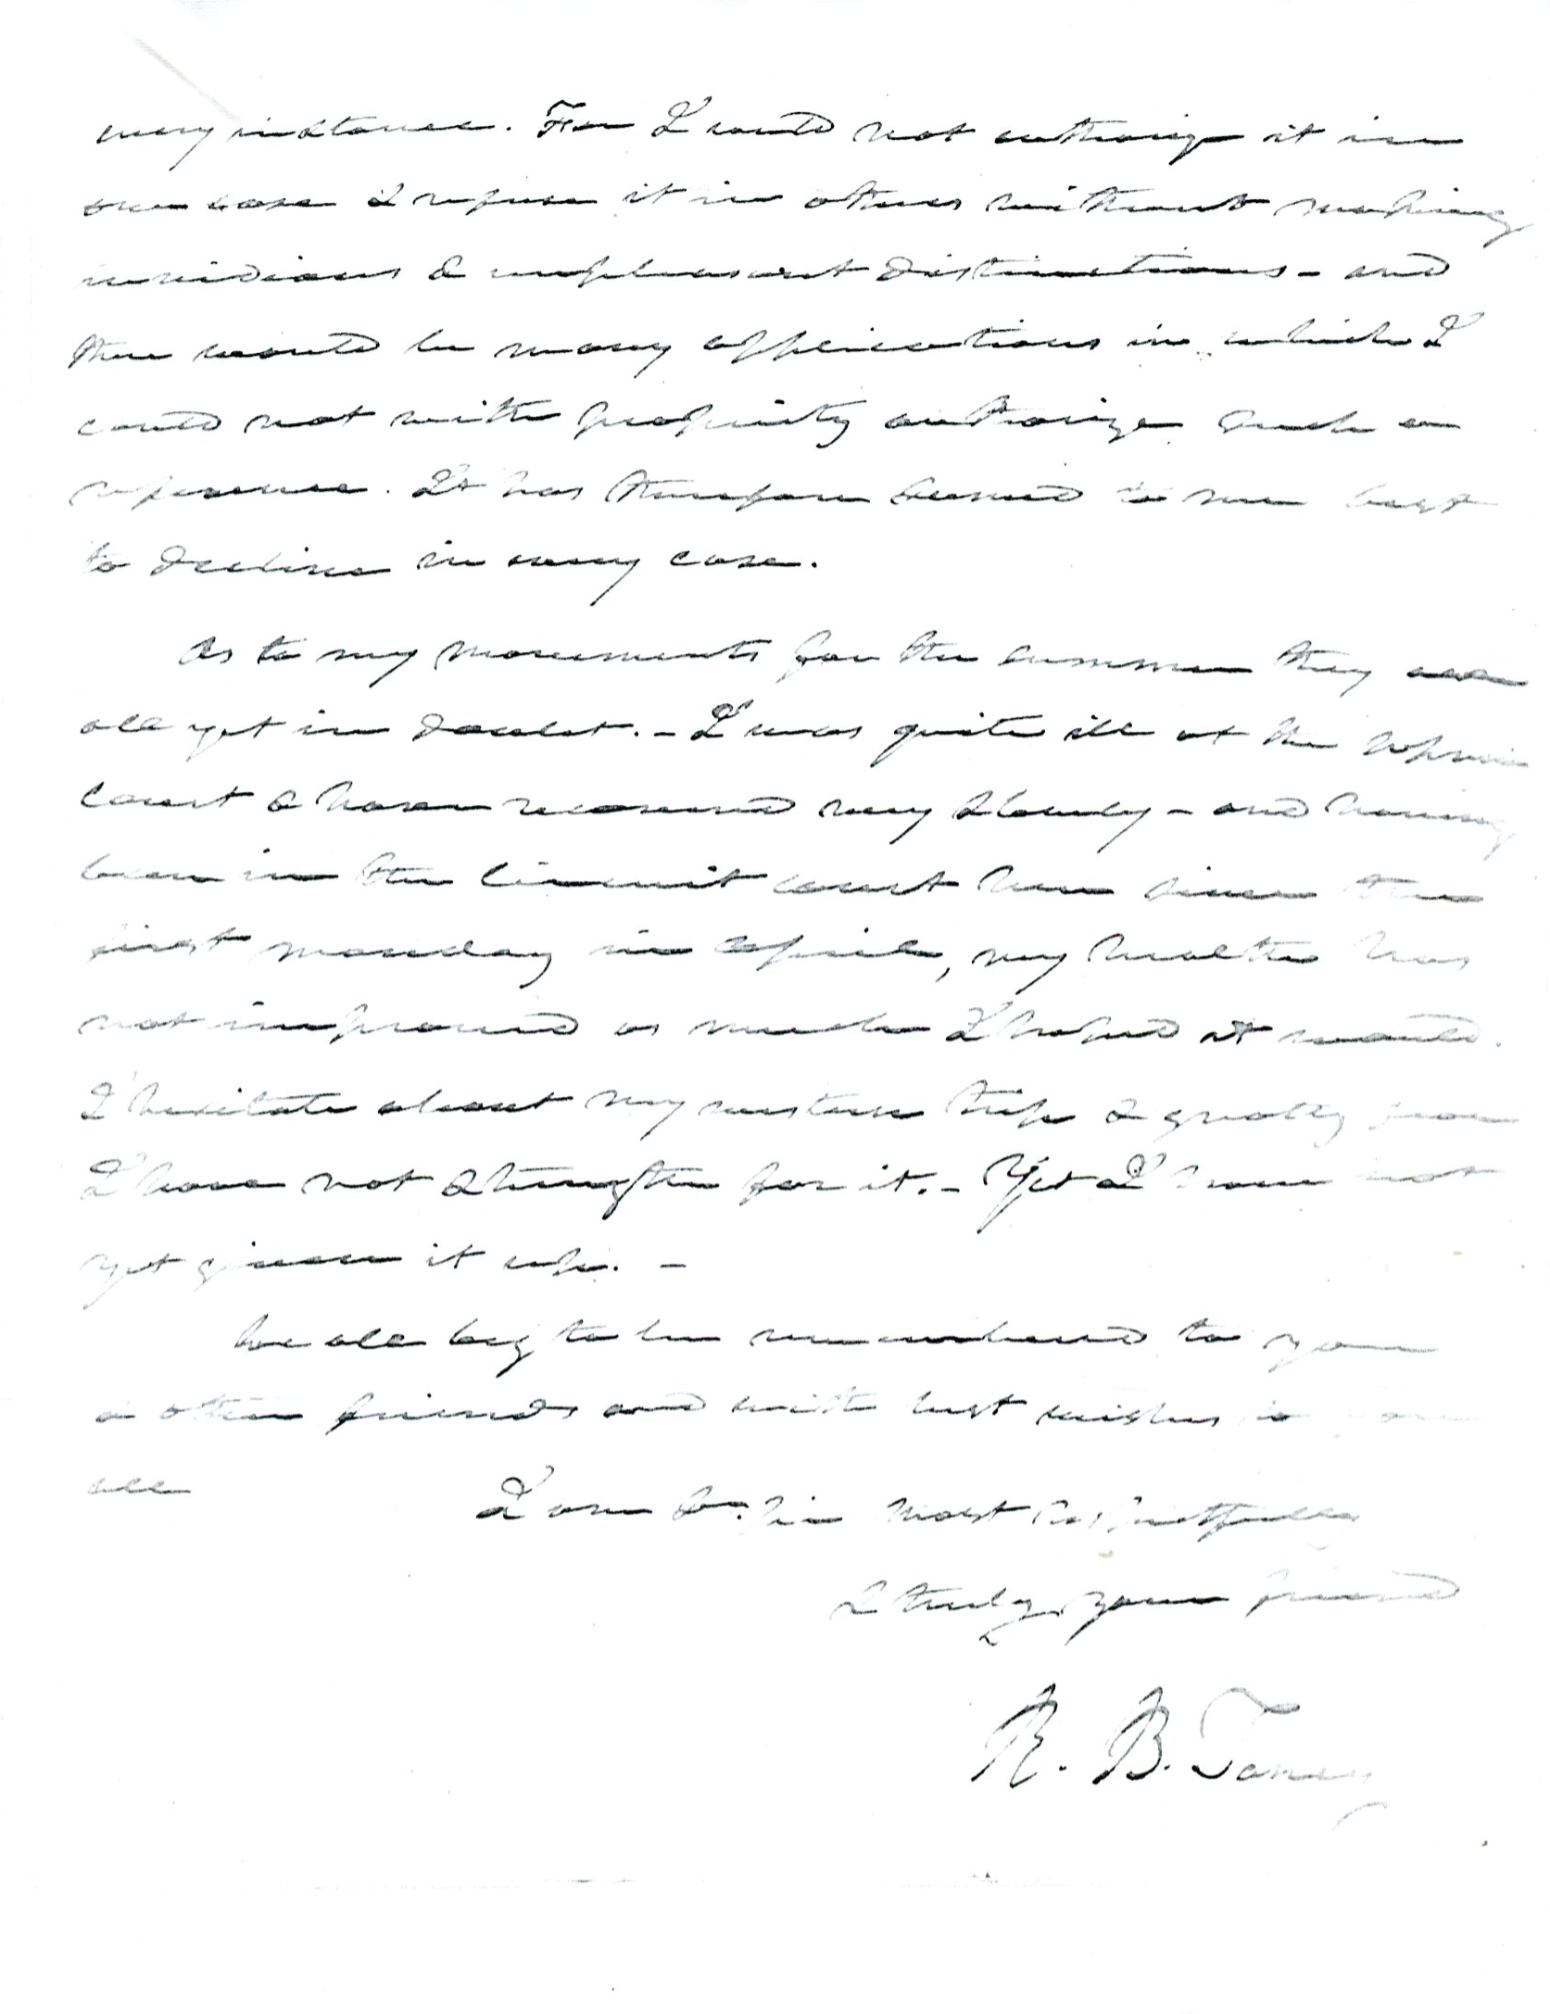 every instance. For I could not authorize it in
one case & refuse it in others without making
invidious & unpleasant distinctions - and
there would be many applications in which I
could not with propriety authorize such a
reference. It has therefore seemed to me best
to decline in every case.
As to my movements for the summer they are
all yet in doubt. - I was quite ill at the Supreme
Court & have recovered very slowly - and having
been in the Circuit court here since the
first monday in April, my health has
not improved as much I hoped it would.
I hesitate about my western trip & greatly fear
I have not strength for it. - Yet I have not
yet given it up. -
We all beg to be remembered to you
& other friends and with best wishes to you
all
I am Dr. Sir most respectfully
& truly your friend
R. B. Taney